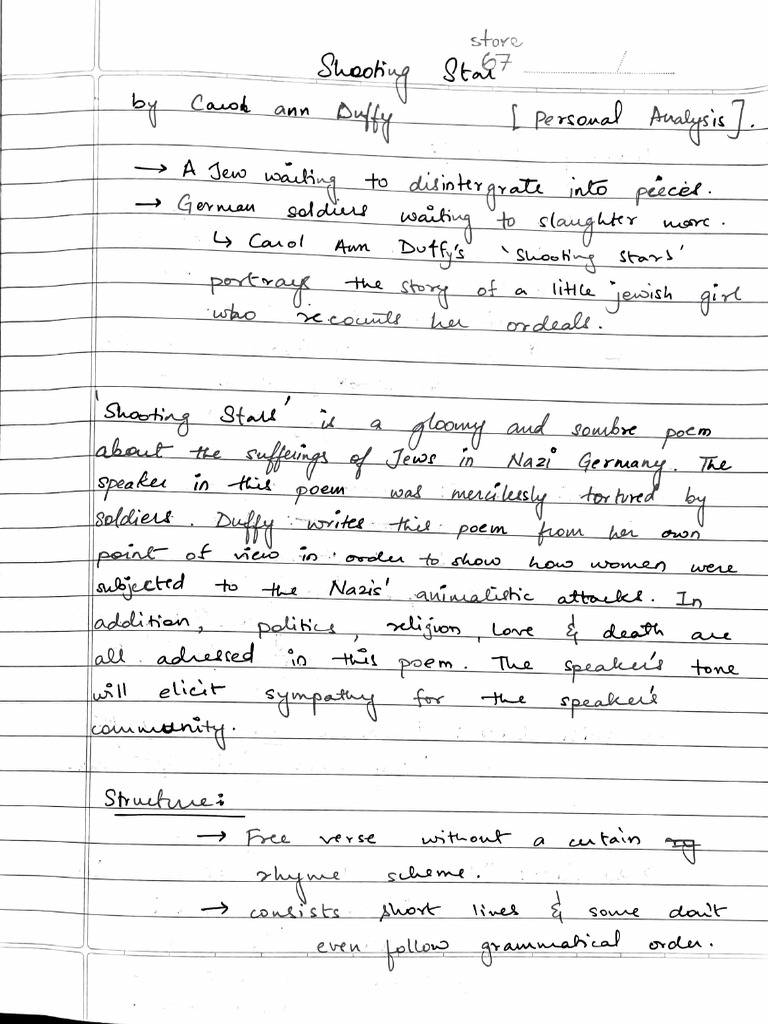 store
Shooting Star 67
by Carol ann Duffy [Personal Analysis].
→ A Jew waiting to disintergrate into peeces.
→ German soldiers waiting to slaughter more.
↳ Carol Ann Duffy's 'Shooting Stars'
portrays the story of a little jewish girl
who recounts her ordeals.
'Shooting Stars' is a gloomy and sombre poem
about the sufferings of Jews in Nazi Germany. The
speaker in this poem was mercilessly tortured by
soldiers. Duffy writes this poem from her own
point of view in order to show how women were
subjected to the Nazis' animalistic attacks. In
addition, politics, religion, love & death are
all adressed in this poem. The speaker's tone
will elicit sympathy for the speaker's
community.
Structure:
→ Free verse without a certain
rhyme scheme.
→ consists short lines & some don't
even follow grammatical order.